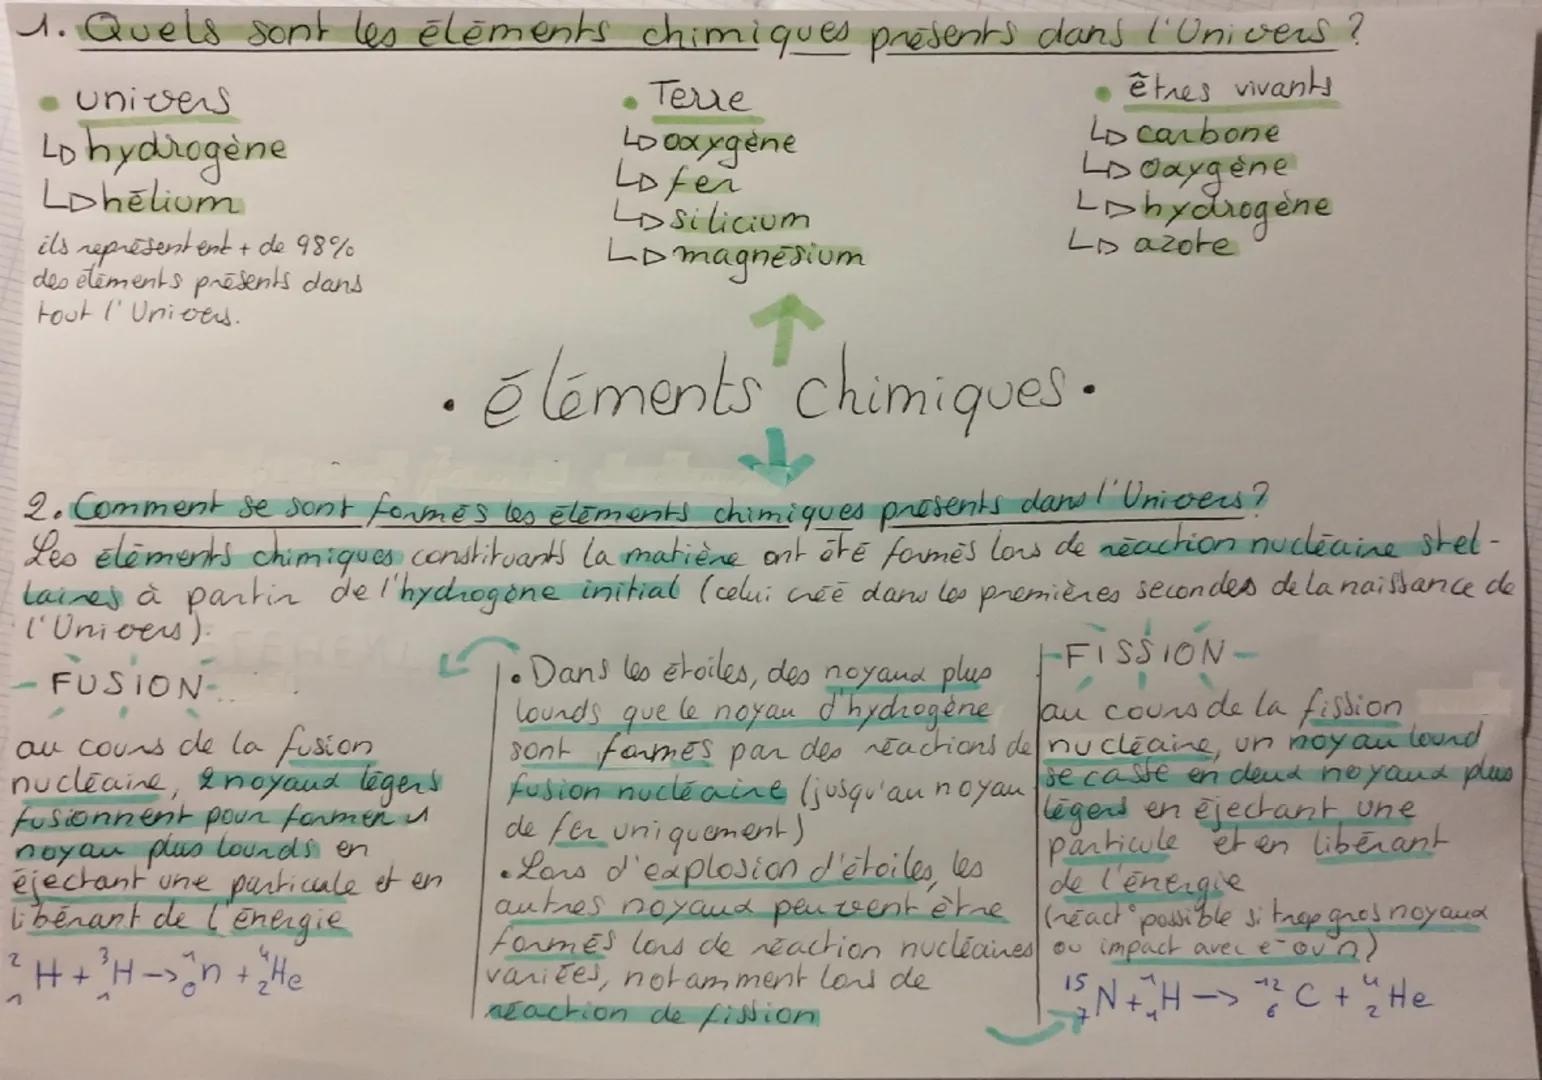 1. Quels sont les éléments chimiques présents dans l'Univers ?
• univers
↳ hydrogène
↳ hélium
ils représentent + de 98%
des éléments présents dans
tout l'Univers.
• Terre
↳ oxygène
↳ fer
↳ silicium
↳ magnésium
• êtres vivants
↳ carbone
↳ oxygène
↳ hydrogène
↳ azote
• éléments chimiques •
2. Comment se sont formés les éléments chimiques présents dans l'Univers ?
Les éléments chimiques constituants la matière ont été formés lors de réaction nucléaire stel-
laires à partir de l'hydrogène initial (celui créé dans les premières secondes de la naissance de
l'Univers).
- FUSION -
au cours de la fusion
nucléaire, 2 noyaux légers
fusionnent pour former 1
noyau plus lourds en
éjectant une particule et en
libérant de l'énergie
²₁H + ³₁H → ¹₀n + ⁴₂He
• Dans les étoiles, des noyaux plus
lourds que le noyau d'hydrogène
sont formés par des réactions de
fusion nucléaire (jusqu'au noyau
de fer uniquement)
• Lors d'explosion d'étoiles, les
autres noyaux peuvent être
formés lors de réaction nucléaires
variées, notamment lors de
réaction de fission
- FISSION -
au cours de la fission
nucléaire, un noyau lourd
se casse en deux noyaux plus
légers en éjectant une
particule et en libérant
de l'énergie
(réact° possible si trop gros noyaux
ou impact avec e⁻ ou n)
¹⁵₇N + ¹₁H → ¹²₆C + ⁴₂He